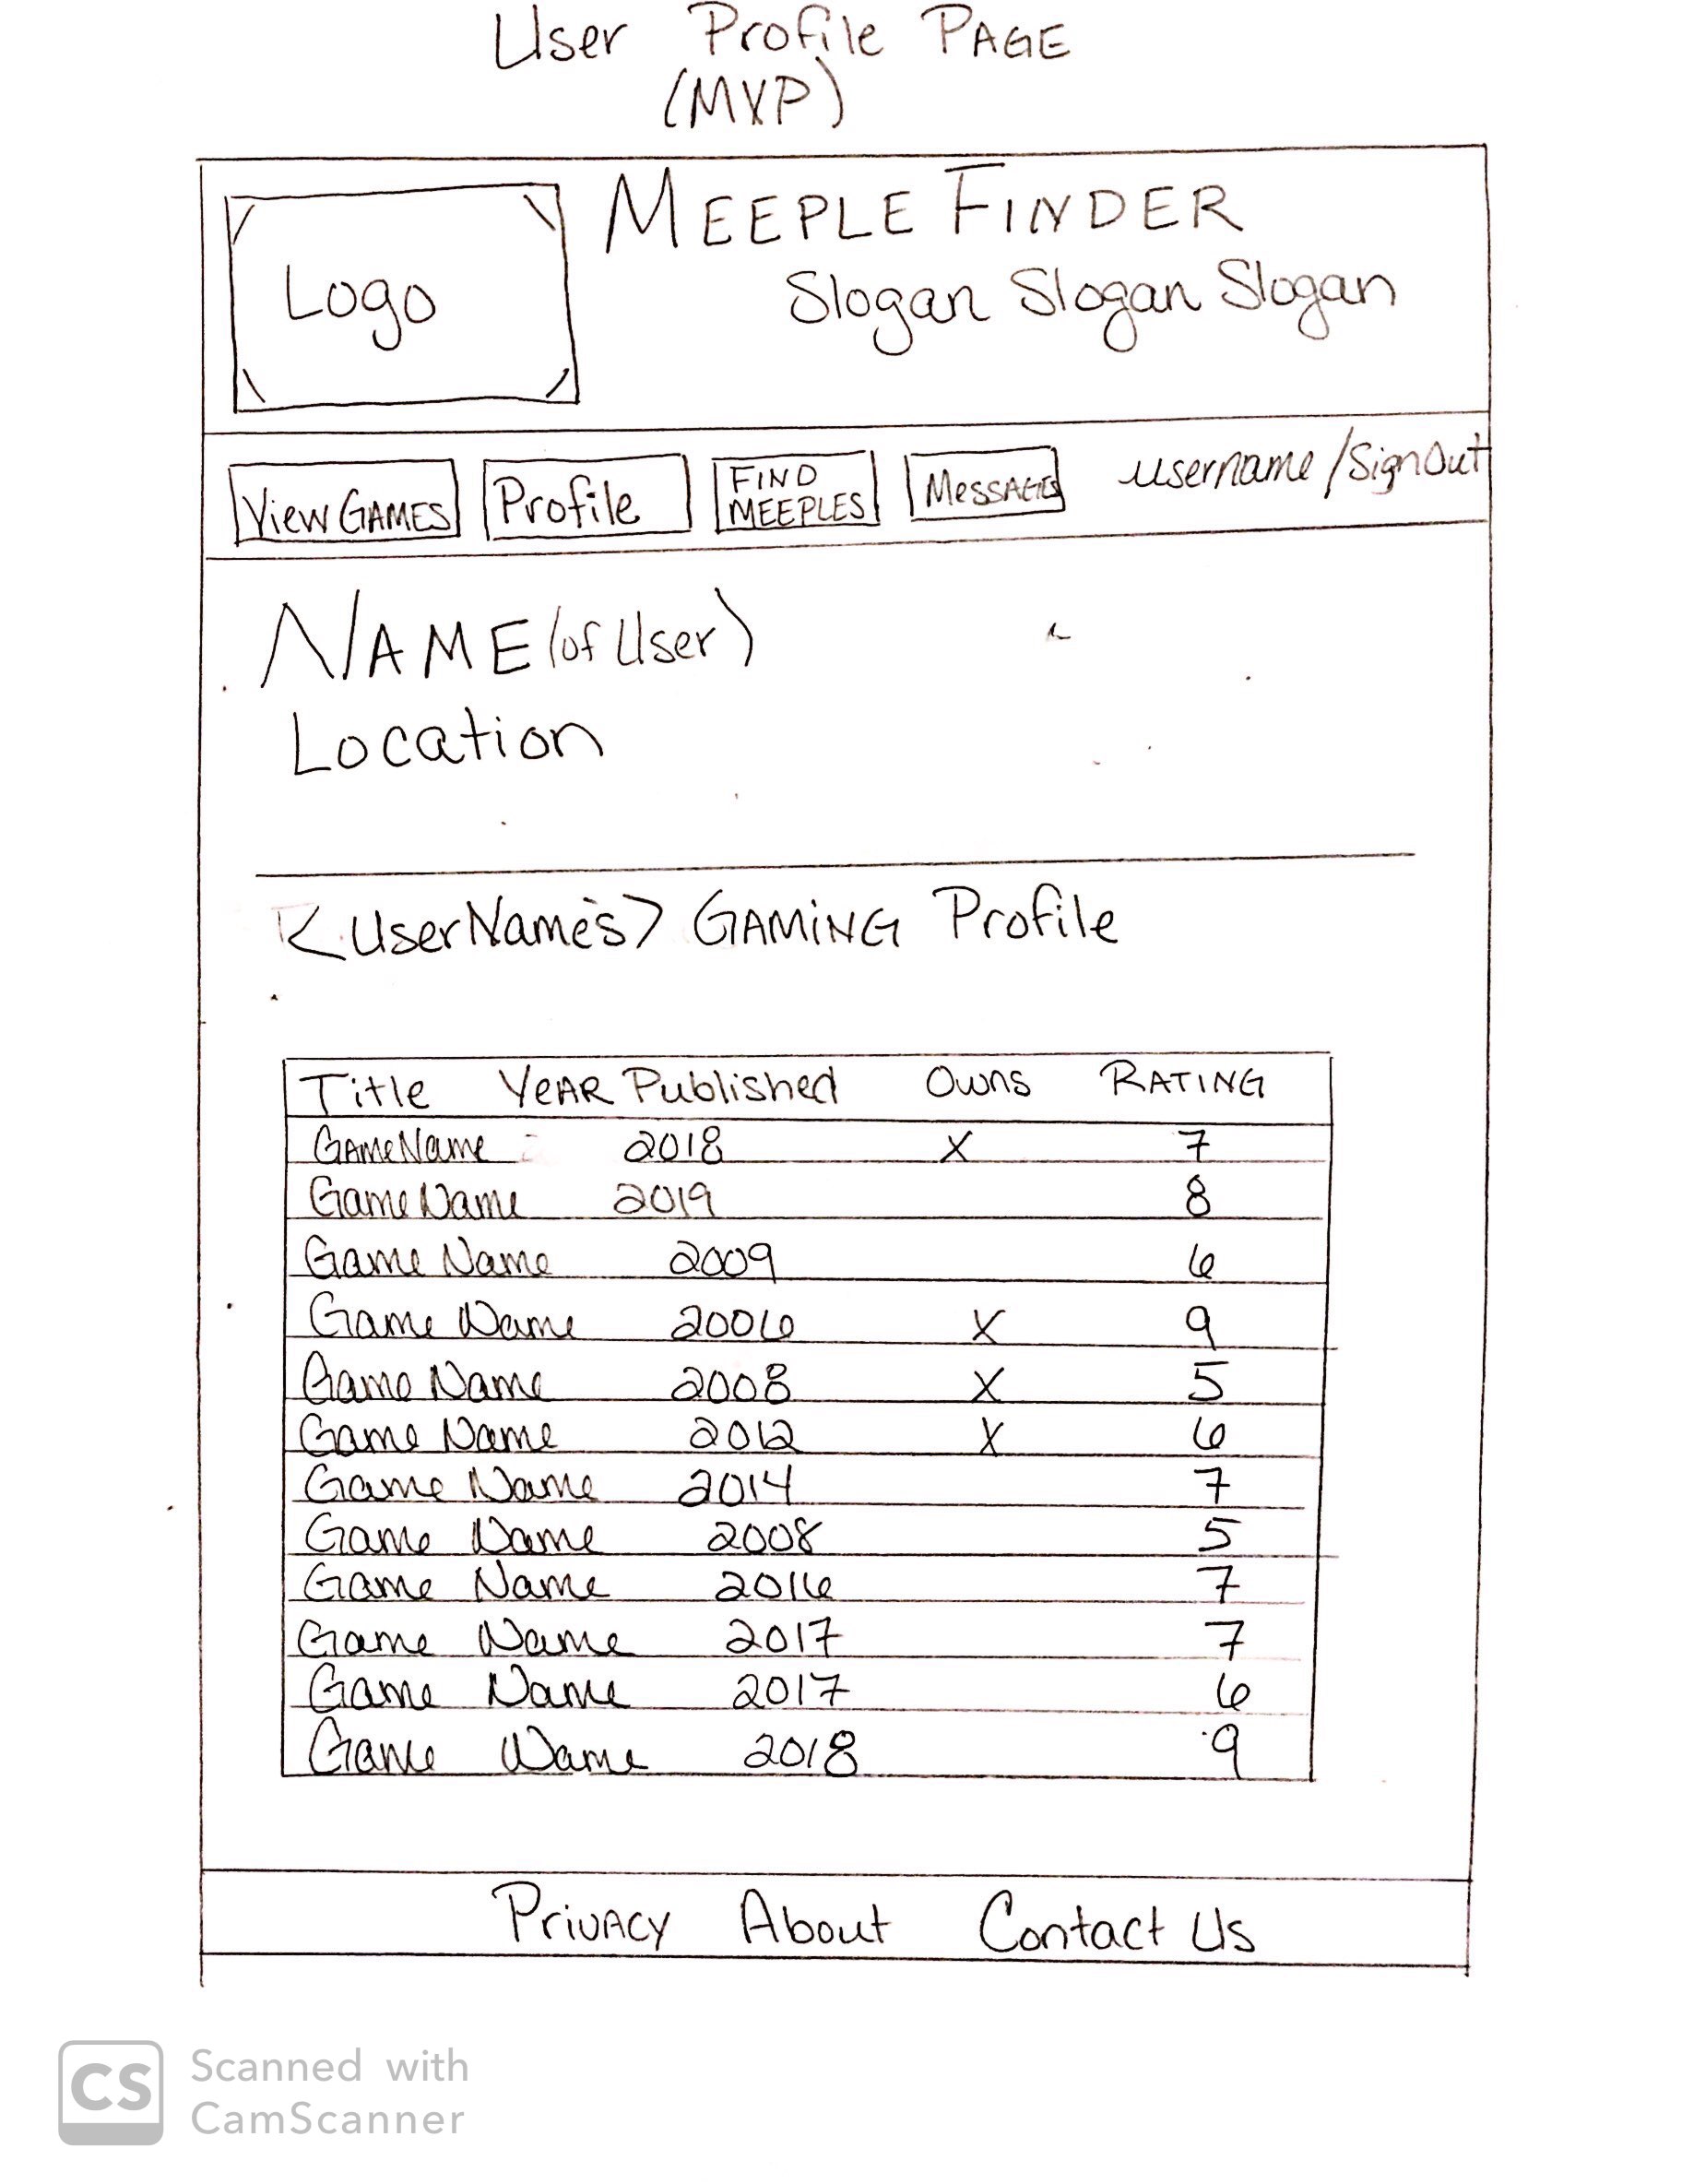 User Profile PAGE
(MVP)
MEEPLE FINDER
Logo
Slogan Slogan Slogan
View GAMES Profile FIND MEEPLES MESSAGES username/SignOut
NAME (of User)
Location
<UserName's> GAMING Profile
Title YEAR Published Owns RATING
GameName 2018 X 7
Game Name 2019 8
Game Name 2009 6
Game Name 2006 X 9
Game Name 2008 X 5
Game Name 2012 X 6
Game Name 2014 7
Game Name 2008 5
Game Name 2016 7
Game Name 2017 7
Game Name 2017 6
Game Name 2018 9
PRIVACY About Contact Us
CS Scanned with
CamScanner